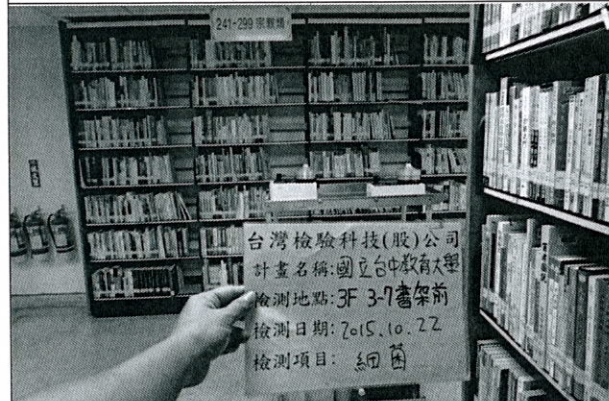 241-299 宗教類
台灣檢驗科技(股)公司
計畫名稱:國立台中教育大學
檢測地點:3F 3-7書架前
檢測日期:2015.10.22
檢測項目: 細菌